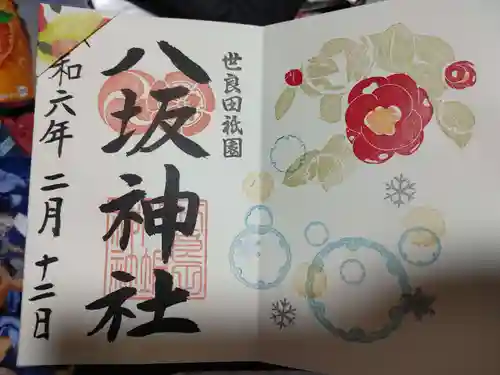 世良田祇園
八坂神社
和六年二月十二日